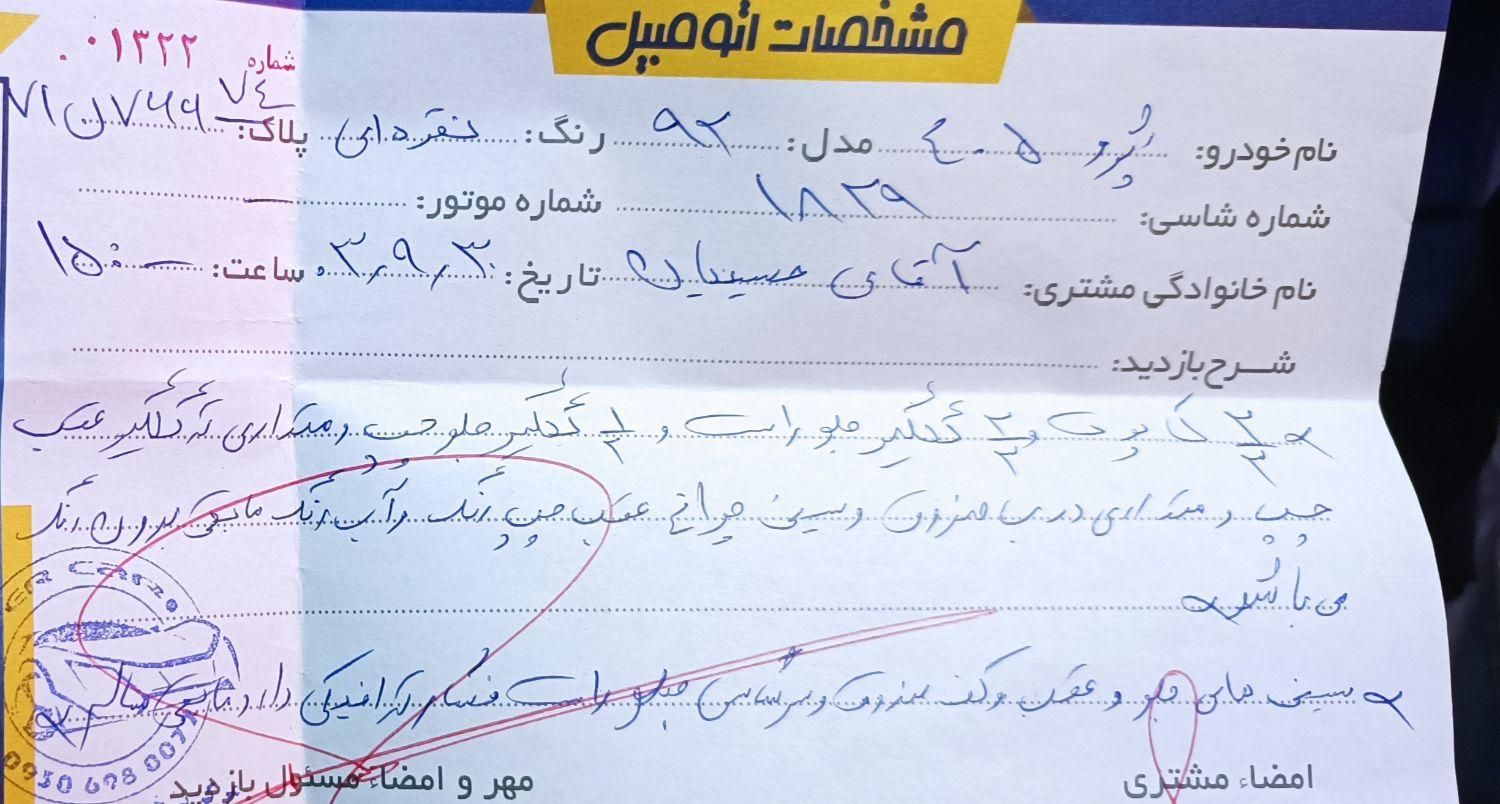 مشخصات اتومبیل
شماره ۰۱۳۲۲
نام خودرو: پژو ۴۰۵ مدل: ۹۲ رنگ: نقره‌ای پلاک: ۷۱ل۷۶۹ ۷۴
شماره شاسی: ۱۸۲۹ شماره موتور: —
نام خانوادگی مشتری: آقای حسینیان تاریخ: ۰۳٫۹٫۳۰ ساعت: ۱۵:۰۰
شرح بازدید:
۲/۳ کاپوت و ۲/۳ گلگیر جلو راست و ۱/۲ گلگیر جلو چپ و مقداری گلگیر عقب
چپ و مقداری درب صندوق و سینی چراغ عقب چپ رنگ و آب رنگ مابقی بدون رنگ
می باشد
سینی های جلو و عقب و کف صندوق و سرشاسی جلو راست فشار ترافیکی دارد مابقی سالم
امضاء مشتری
مهر و امضاء مسئول بازدید
0930 698 0077